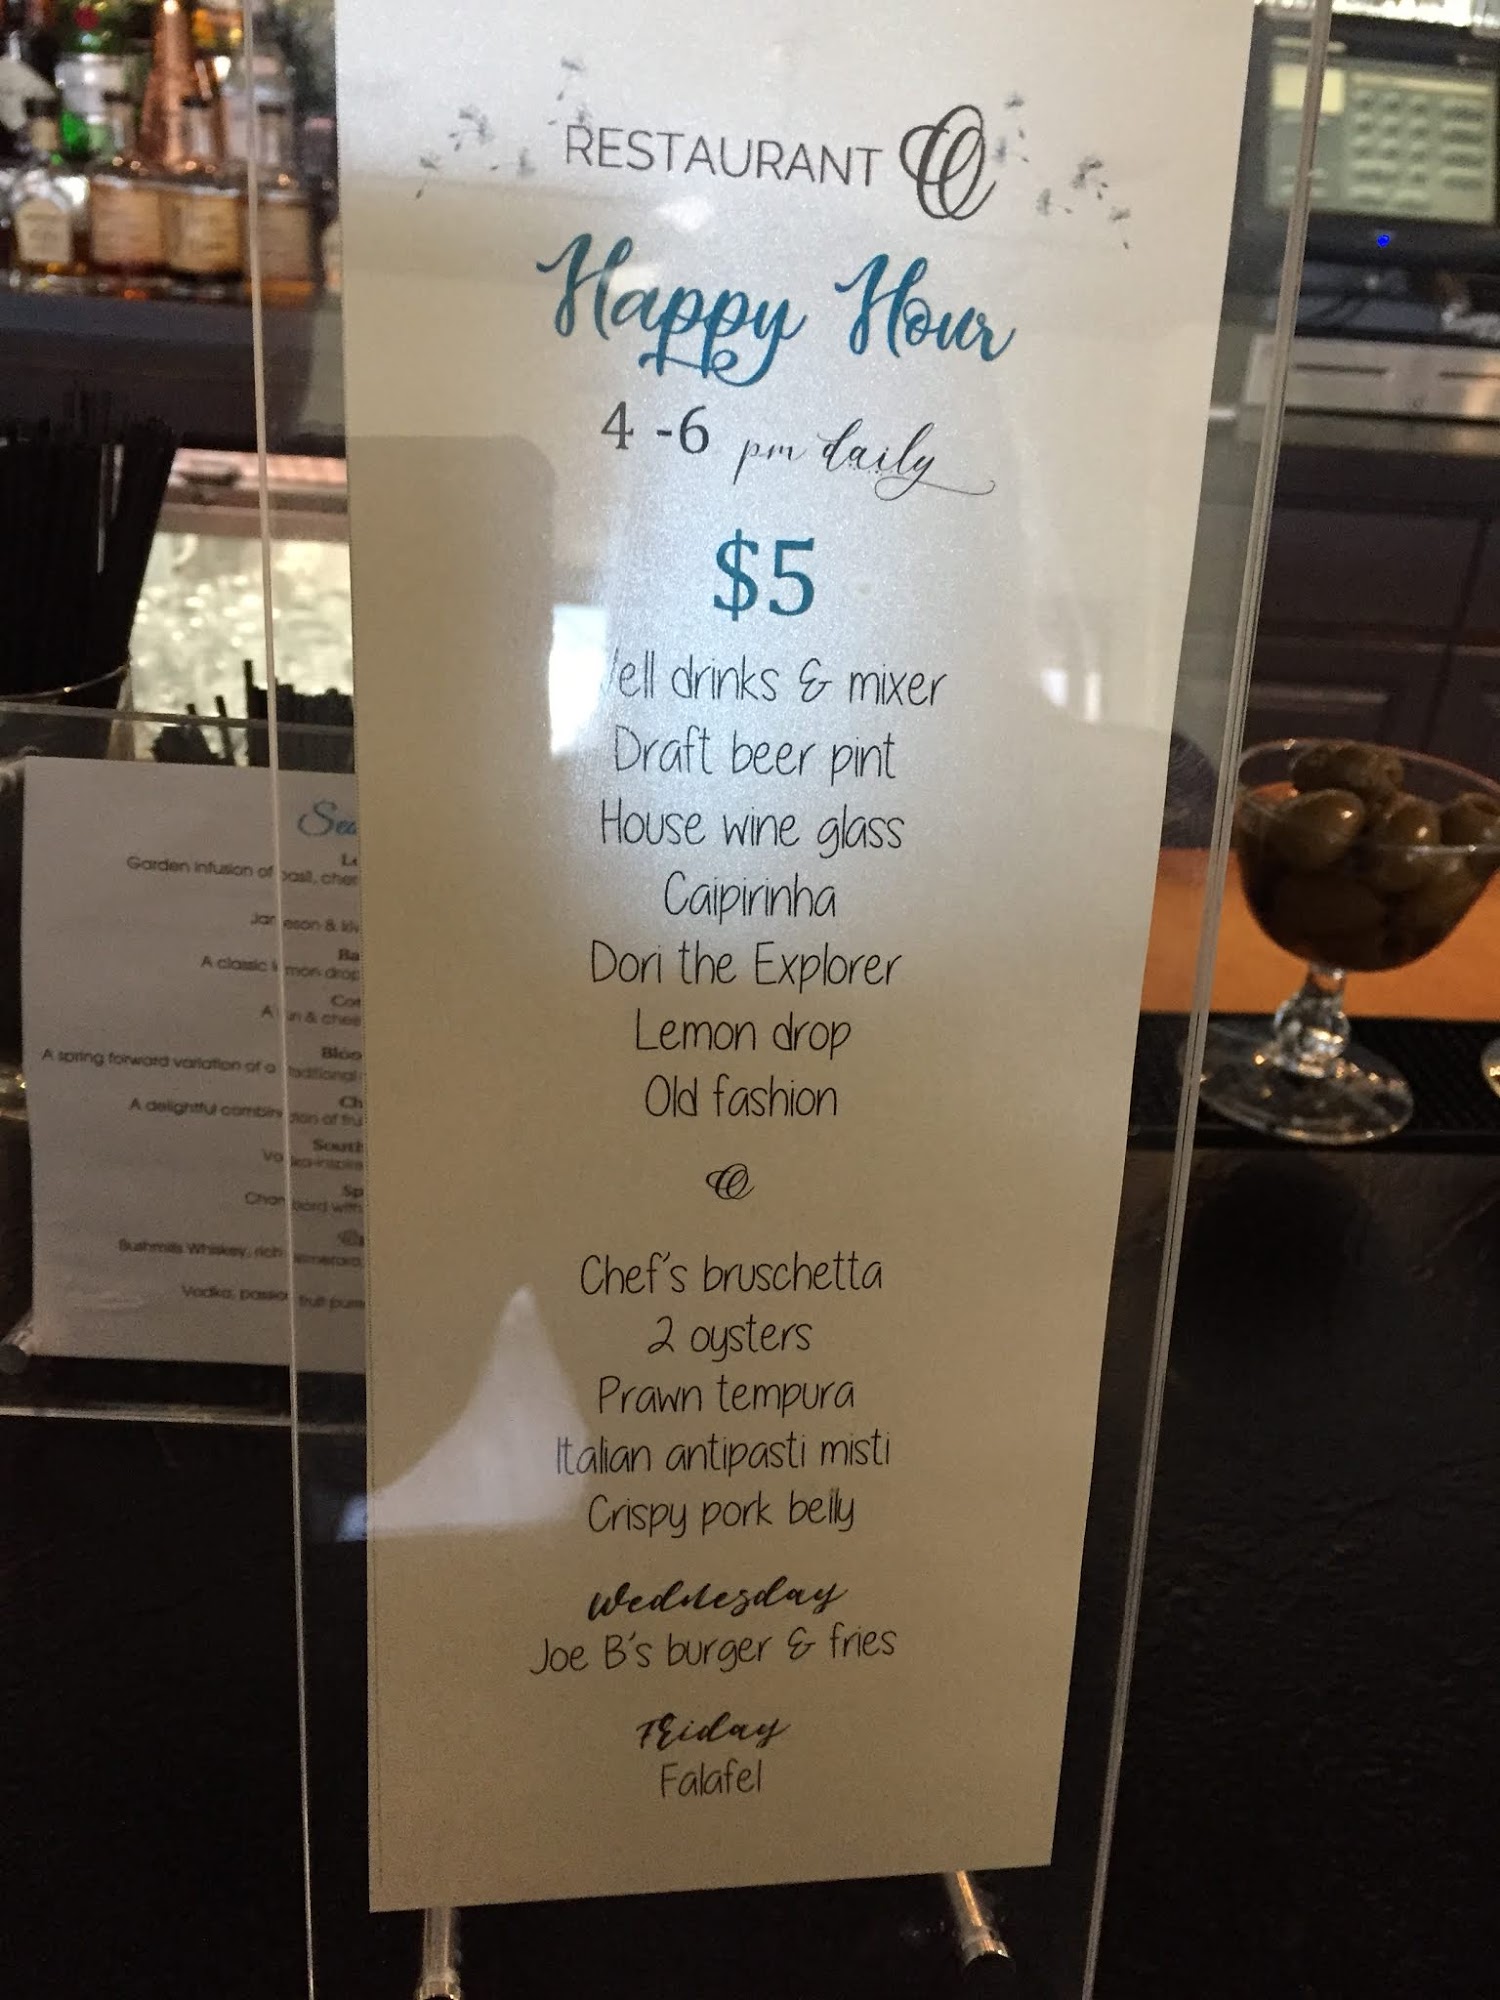 RESTAURANT O
Happy Hour
4 -6 pm daily
$5
Well drinks & mixer
Draft beer pint
House wine glass
Caipirinha
Dori the Explorer
Lemon drop
Old fashion
O
Chef's bruschetta
2 oysters
Prawn tempura
Italian antipasti misti
Crispy pork belly
Wednesday
Joe B's burger & fries
Friday
Falafel
Garden infusion of basil,
A classic lemon drop
A spring forward variation of a traditional
A delightful combination of
Bushmills Whiskey, rich
Vodka, passion fruit